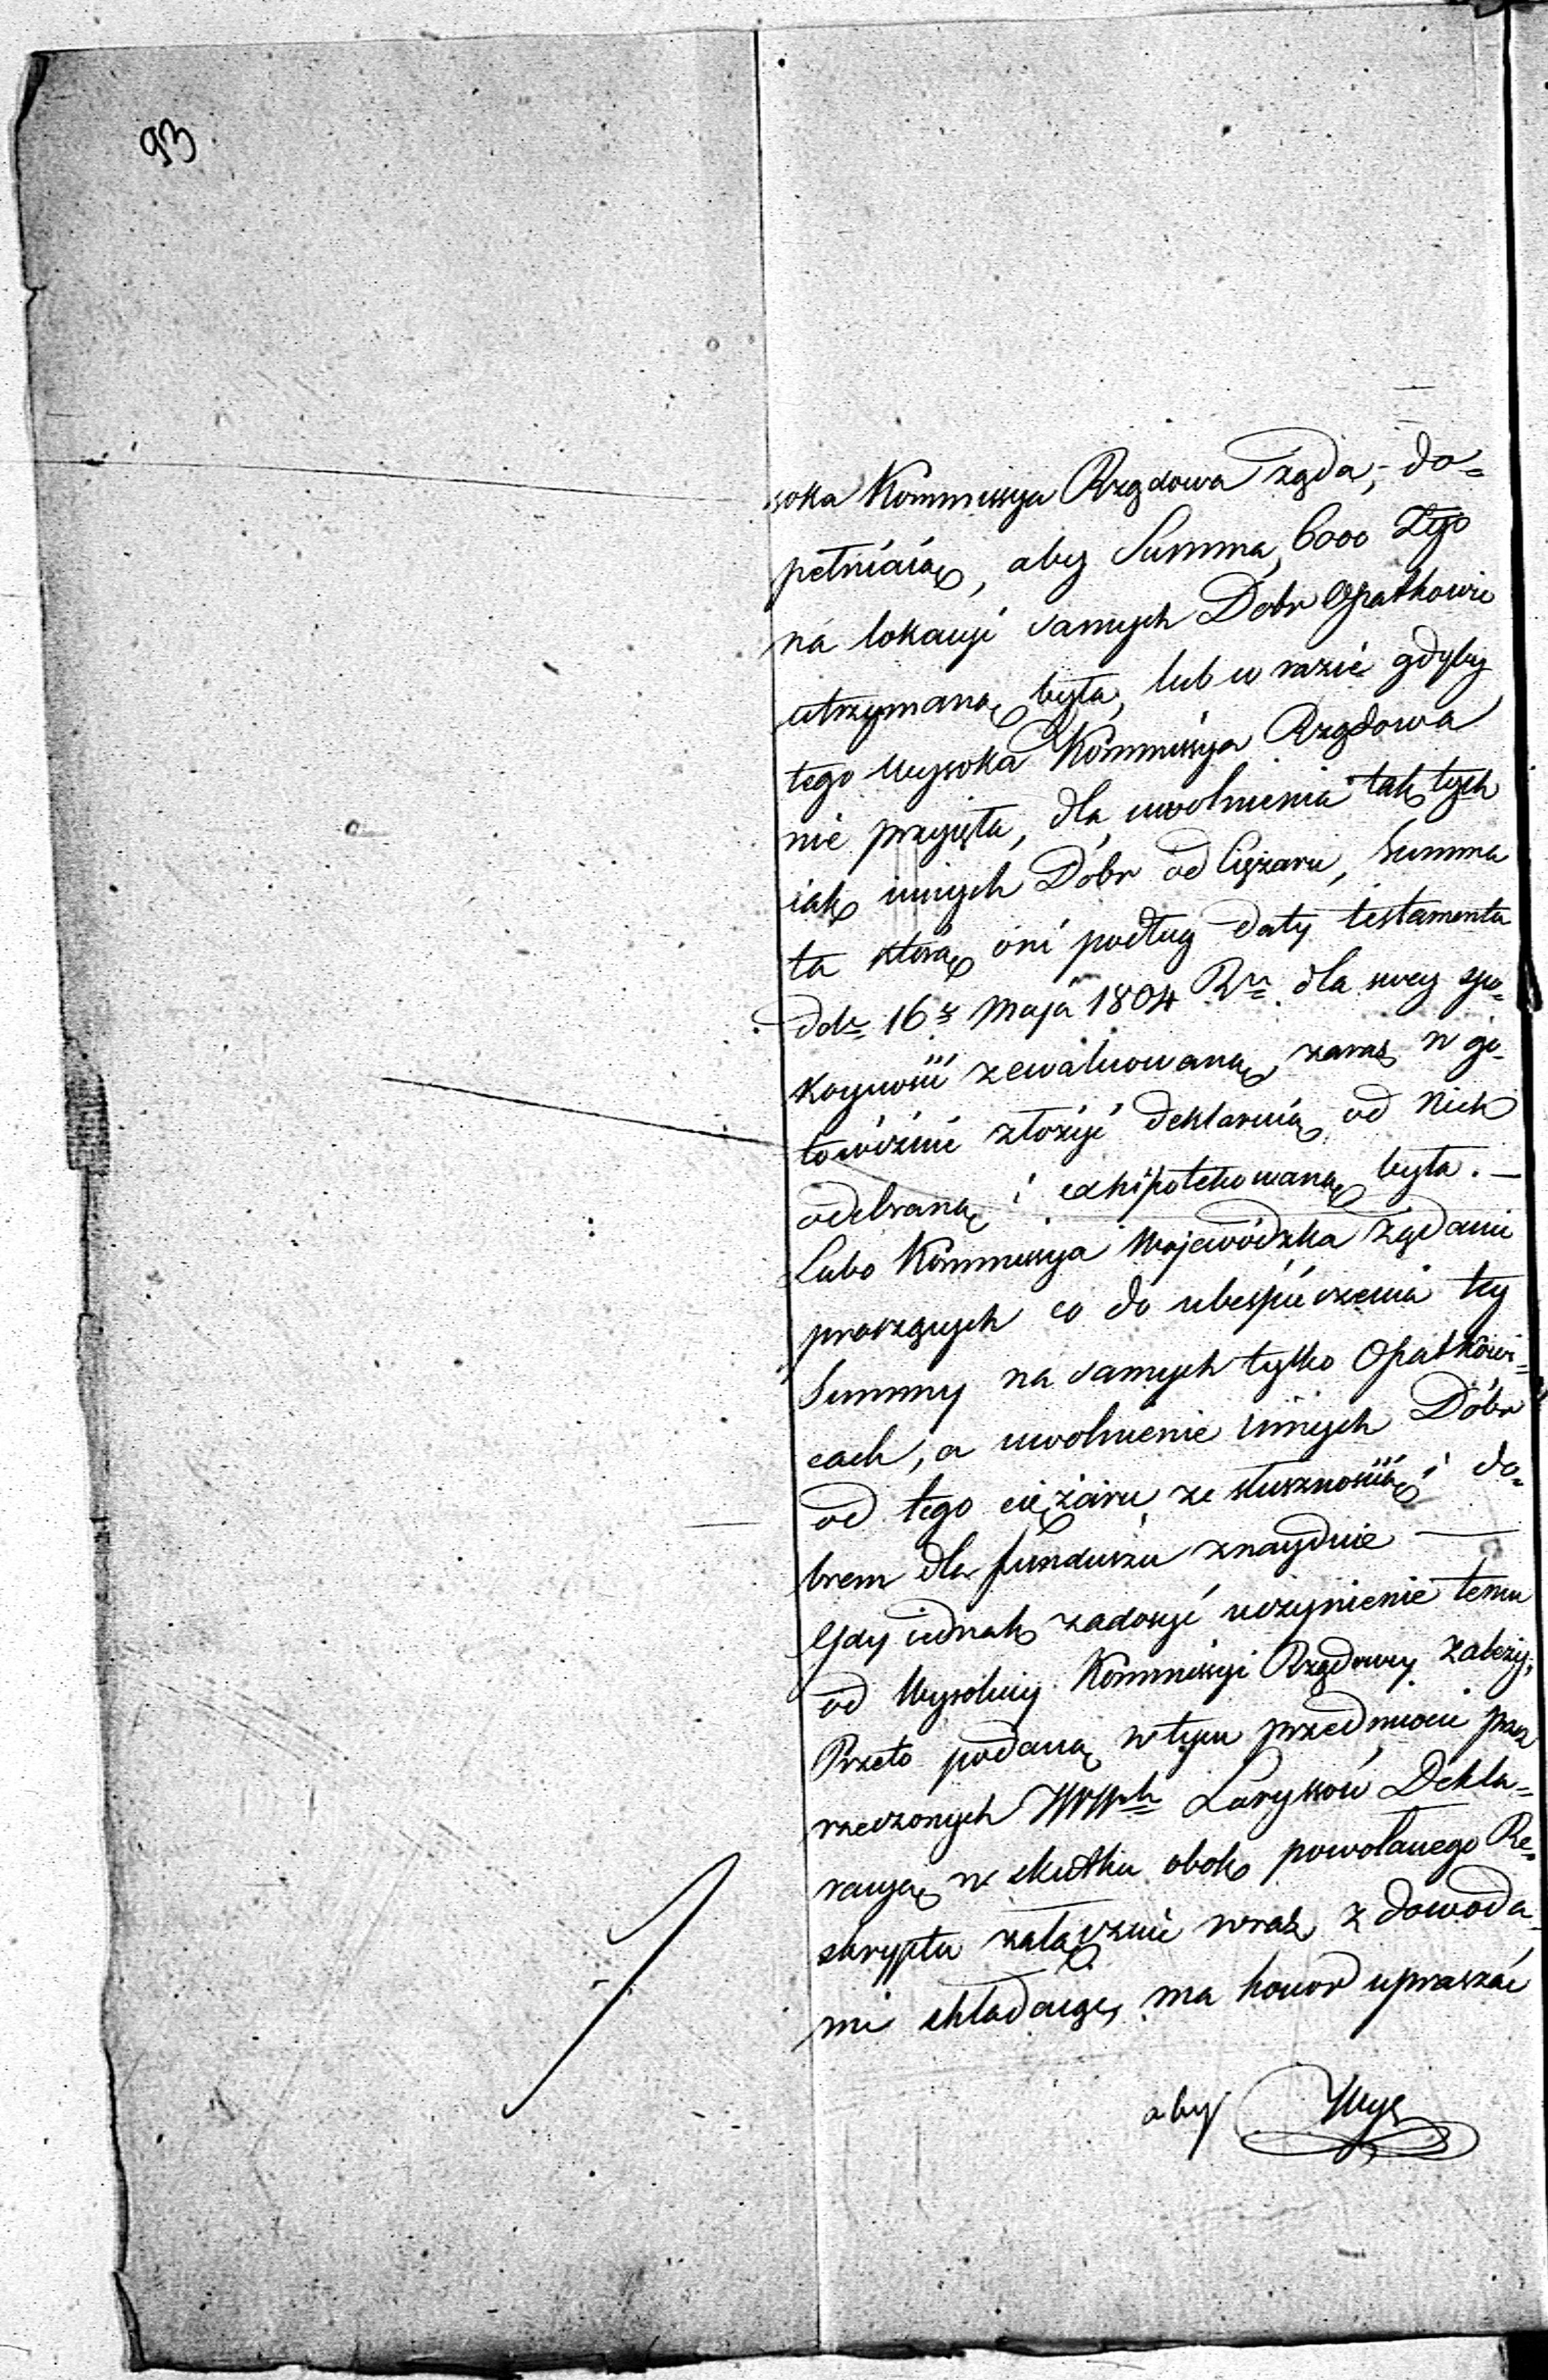 93
soka Kommissya Rządowa żąda, do=
pełniaią, aby Summa, 6000 Złp
na lokacyi samych Dobr Opatkowic
utrzymaną była, lub w razie gdyby
tego Wysoka Kommissya Rządowa
nie przyięła, dla uwolnienia tak tych
iak innych Dobr od Ciężaru, Summa
ta którą oni podług daty testamentu
ddt 16 Maja 1804 R. dla swey spo=
koyności zewaluowaną, zaraz w go=
towiźnie złożyć deklaruią, od Nich
odebraną i exhipotekowaną była. —
Lubo Kommissya Wojewódzka żądanie
proszących co do ubespieczenia tey
Summy na samych tylko Opatkowi=
cach, a uwolnienie innych Dóbr
od tego ciężaru, ze słusznością i do=
brem dla funduszu znayduie —
Gdy iednak zadosyć uczynienie temu
od Wysokiey Kommissyi Rządowey zależy,
Przeto podaną w tym przedmiocie przez
rzeczonych WWch Laryssów Dekla=
racyą w skutku obok powołanego Re=
skryptu załącznie wraz z dowoda=
mi składając, ma honor upraszać
aby Wys